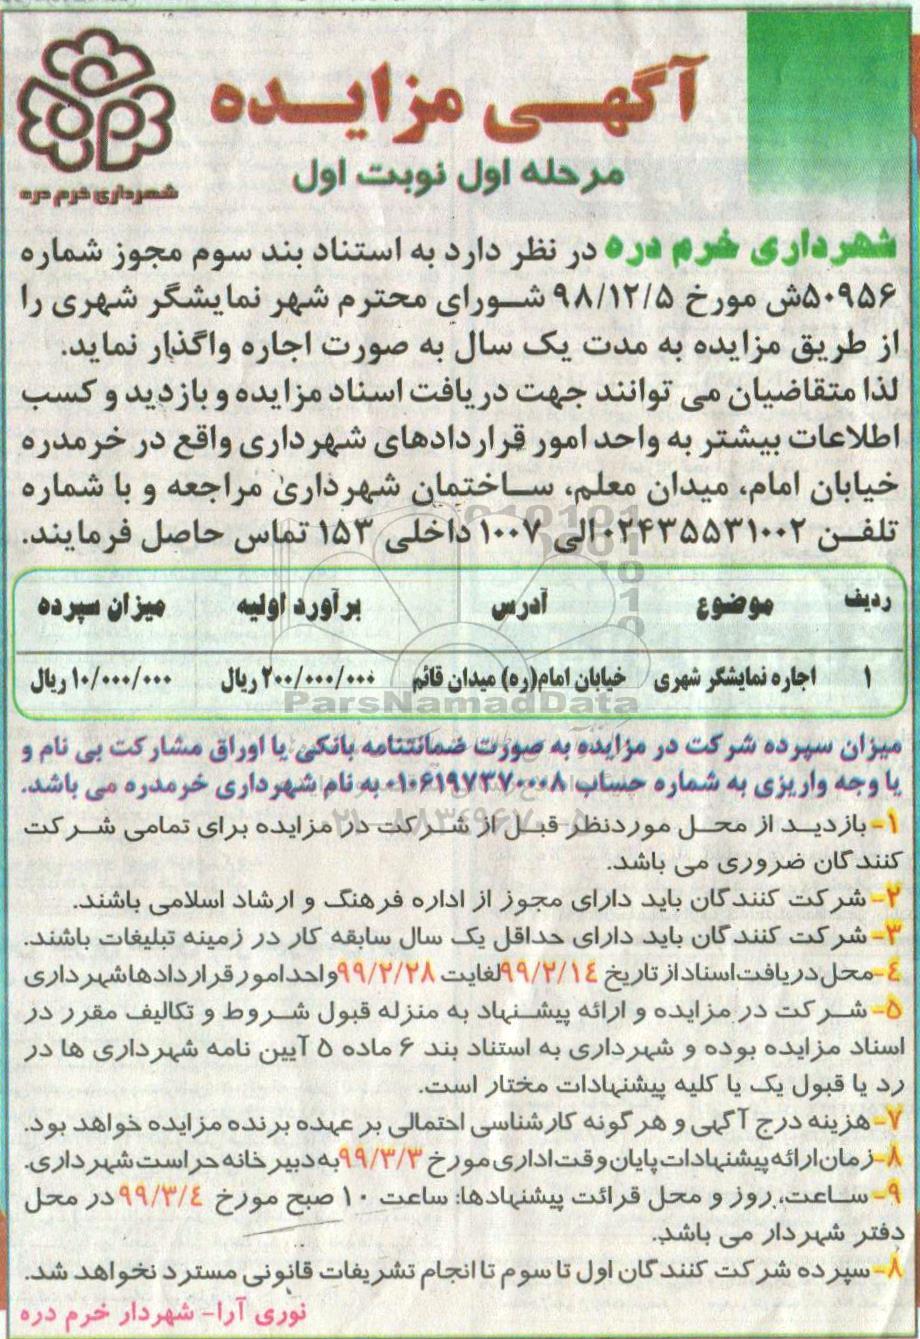 آگهی مزایده
مرحله اول نوبت اول
شهرداری خرم دره
شهرداری خرم دره در نظر دارد به استناد بند سوم مجوز شماره
۵۰۹۵۶ش مورخ ۹۸/۱۲/۵ شورای محترم شهر نمایشگر شهری را
از طریق مزایده به مدت یک سال به صورت اجاره واگذار نماید.
لذا متقاضیان می توانند جهت دریافت اسناد مزایده و بازدید و کسب
اطلاعات بیشتر به واحد امور قراردادهای شهرداری واقع در خرمدره
خیابان امام، میدان معلم، ساختمان شهرداری مراجعه و با شماره
تلفن ۰۲۴۳۵۵۳۱۰۰۲ الی ۱۰۰۷ داخلی ۱۵۳ تماس حاصل فرمایند.
ردیف موضوع آدرس برآورد اولیه میزان سپرده
۱ اجاره نمایشگر شهری خیابان امام(ره) میدان قائم ۲۰۰/۰۰۰/۰۰۰ ریال ۱۰/۰۰۰/۰۰۰ ریال
ParsNamadData
میزان سپرده شرکت در مزایده به صورت ضمانتنامه بانکی یا اوراق مشارکت بی نام و
یا وجه واریزی به شماره حساب ۰۱۰۶۱۹۷۳۷۰۰۰۸ به نام شهرداری خرمدره می باشد.
۰۲۱-۸۸۳۴۹۶۷۰-۵
۱- بازدید از محل موردنظر قبل از شرکت در مزایده برای تمامی شرکت
کنندگان ضروری می باشد.
۲- شرکت کنندگان باید دارای مجوز از اداره فرهنگ و ارشاد اسلامی باشند.
۳- شرکت کنندگان باید دارای حداقل یک سال سابقه کار در زمینه تبلیغات باشند.
۴- محل دریافت اسناد از تاریخ ۹۹/۲/۱۴ لغایت ۹۹/۲/۲۸ واحد امور قراردادها شهرداری
۵- شرکت در مزایده و ارائه پیشنهاد به منزله قبول شروط و تکالیف مقرر در
اسناد مزایده بوده و شهرداری به استناد بند ۶ ماده ۵ آیین نامه شهرداری ها در
رد یا قبول یک یا کلیه پیشنهادات مختار است.
۷- هزینه درج آگهی و هرگونه کارشناسی احتمالی بر عهده برنده مزایده خواهد بود.
۸- زمان ارائه پیشنهادات پایان وقت اداری مورخ ۹۹/۳/۳ به دبیرخانه حراست شهرداری.
۹- ساعت، روز و محل قرائت پیشنهادها: ساعت ۱۰ صبح مورخ ۹۹/۳/۴ در محل
دفتر شهردار می باشد.
۸- سپرده شرکت کنندگان اول تا سوم تا انجام تشریفات قانونی مسترد نخواهد شد.
نوری آرا- شهردار خرم دره